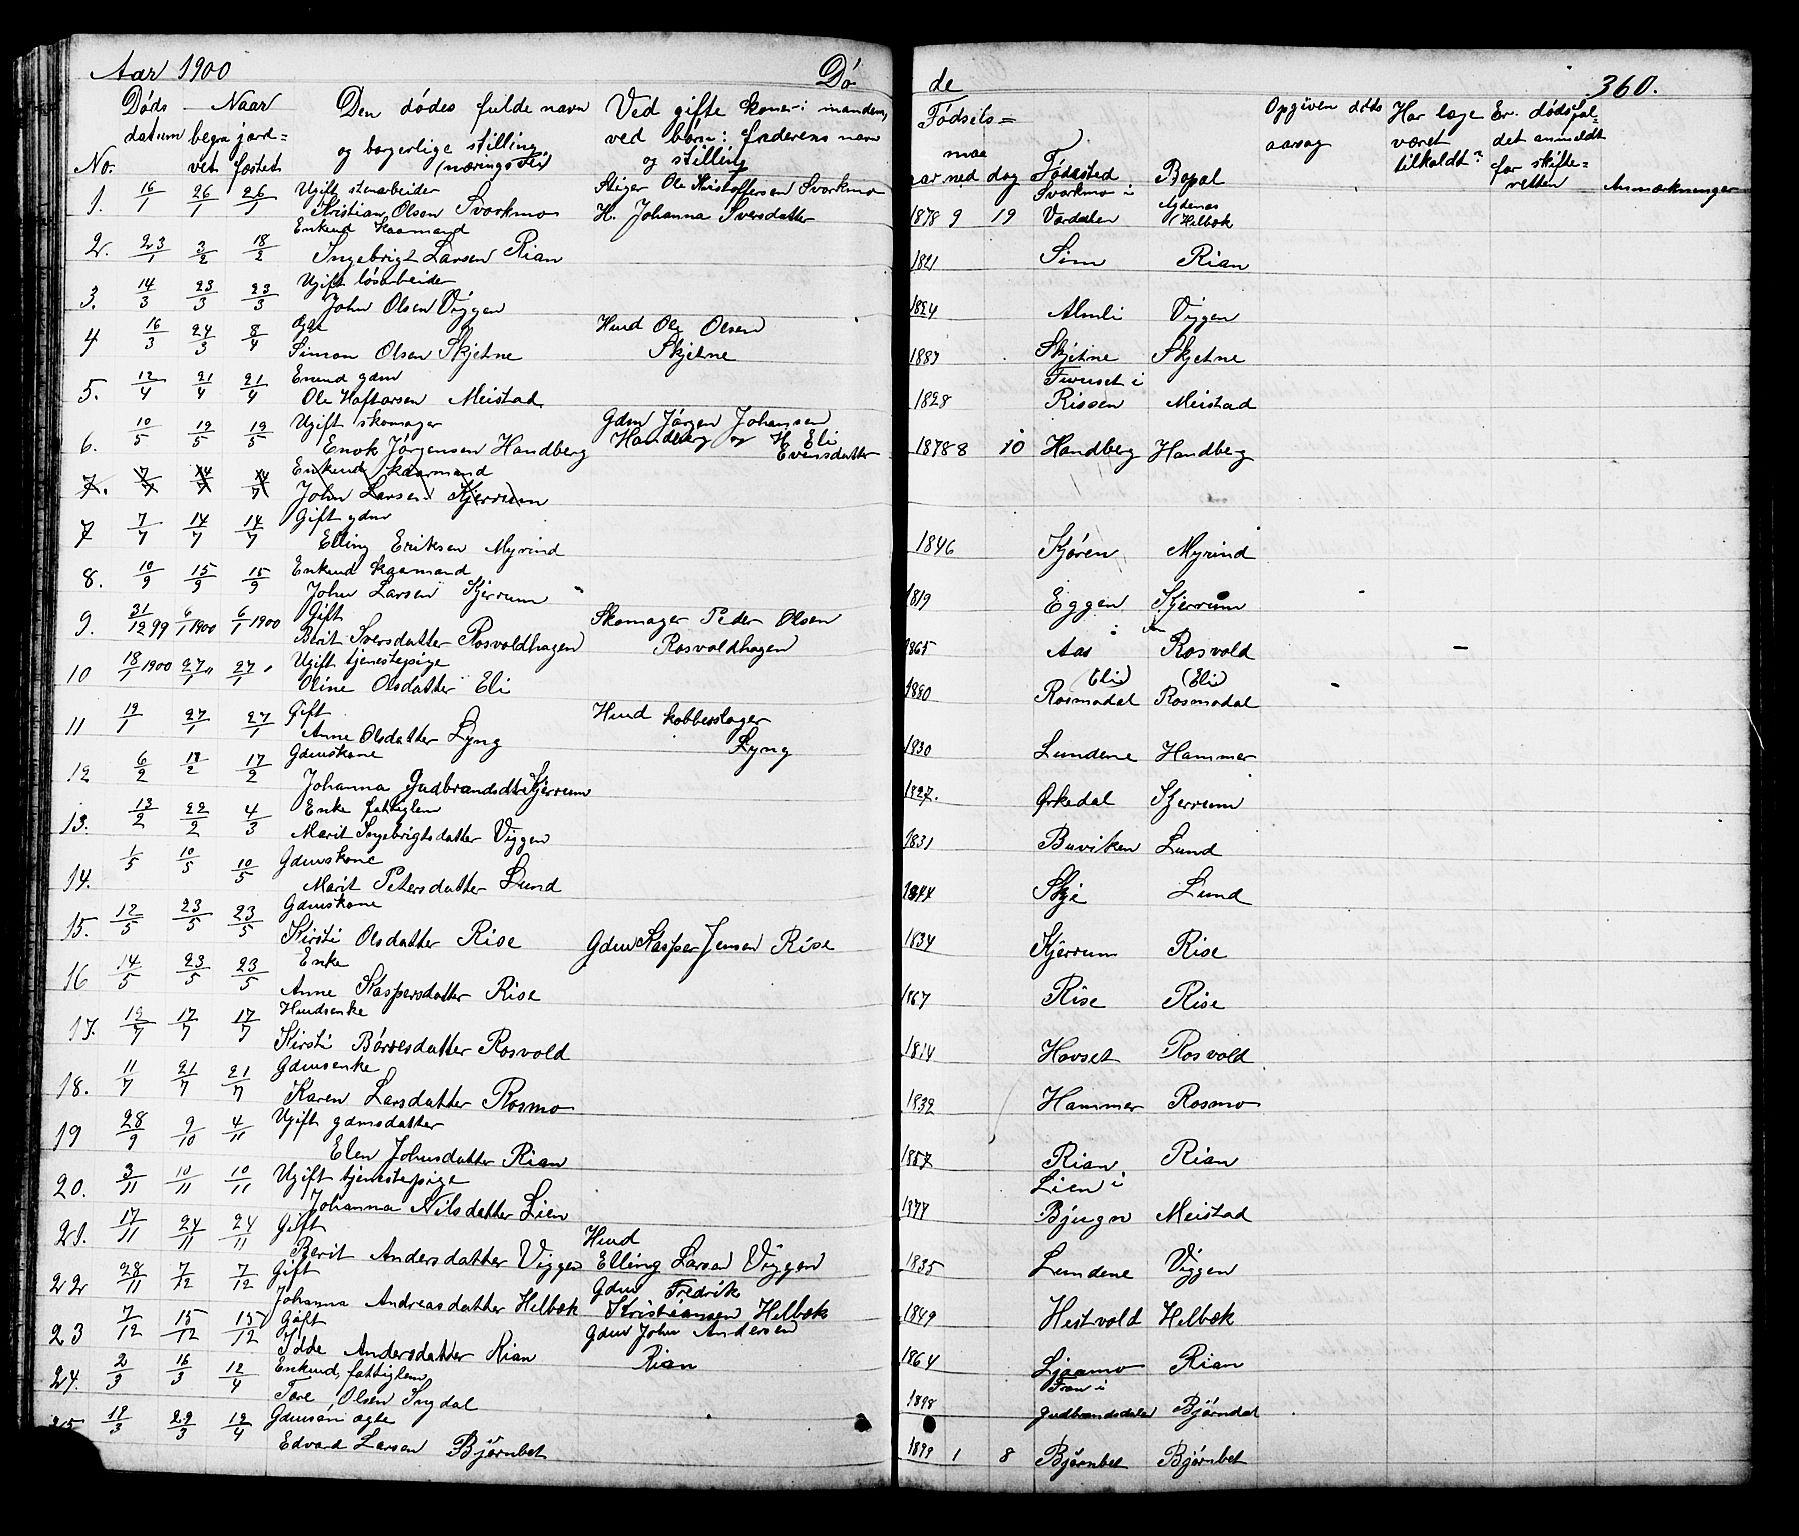 Aar 1900 Dö de 360.
Döds Naar Den dödes fulde navn Ved gifte koner: mandens, Födsels= Opgiven döds Har læge Er dødsfal=
datum begra jord= og borgerlige stilling ved börn: faderens navn maa aarsag været det anmeldt
No. vet fæstet (næringsvei) og stilling aar ned dag Födested Bopal tilkaldt? for skifte=
retten Anmærkninger
1. 16/1 26/1 26/1 Ugift stenarbeider Stiger Ole Kristoffersen Svorkmo Svorkmo i Agdenes
Kristian Olsen Svorkmo H. Johanna Sversdatter 1878 9 19 Værdalen Helbæk
Enkemd kaamand
2. 23/1 3/2 18/2 Ingebrigt Larsen Rian 1821 Sim Rian
Ugift lösarbeider
3. 14/3 23/3 23/3 John Olsen Viggen 1824 Almli Viggen
4 16/3 24/3 8/4 Ægte Husmd Ole Olsen
Simon Olsen Skjetne Skjetne 1887 Skjetne Skjetne
5. 12/4 21/4 21/4 Enemd gdm Furuset i
Ole Haftorsen Meistad 1828 Rissen Meistad
Ugift skomager Gdm Jörgen Johansen
6. 10/5 19/5 19/5 Enok Jörgensen Handberg Handberg og H. Eli Evensdatter 1878 8 10 Handberg Handberg
7. 7/7 14/7 14/7 Enkemd kaarmand
John Larsen Kjerrum
7 7/7 14/7 14/7 Gift gdm
Elling Eriksen Myrind 1846 Kjören Myrind
8. 10/9 15/9 15/9 Enkemd kaarmand
John Larsen Kjerrum 1819 Eggen Kjerrum
9. 31/12 99 6/1 1900 6/1 1900 Gift Skomager Peder Olsen
Berit Sversdatter Rosvoldhagen Rosvoldhagen 1865 Aas Rosvold
10 18/1 1900 27/1 " 27/1 " Ugift tjenestepige (Eli) (Eli)
Oline Olsdatter Eli 1880 Rosmodal Rosmodal
11 19/1 27/1 27/1 Gift Husmd kobberslager
Anne Olsdatter Lyng Lyng 1830 Lundene Hammer
12 6/2 17/2 17/2 Gdmskone
Johanna Gudbrandsdtr Kjerrum 1827. Ørkedal Kjerrum
13. 13/2 22/2 4/3 Enke fattiglem
Marit Ingebrigtsdatter Viggen 1831 Buviken Lund
14. 1/5 10/5 10/5 Gdmskone
Marit Petersdatter Lund 1844 Skje Lund
15. 12/5 23/5 23/5 Gdmskone
Kirsti Olsdatter Rise Gdm Kasper Jensen Rise 1834 Kjerrum Rise
16 14/5 23/5 23/5 Enke
Anne Kaspersdatter Rise 1867 Rise Rise
17. 12/7 17/7 17/7 Husmdsenke
Kirsti Börresdatter Rosvold 1814 Hovset Rosvold
18. 11/7 21/7 21/7 Gdmsenke
Karen Larsdatter Rosmo 1832 Hammer Rosmo
19 28/9 9/10 4/11 Ugift gdmsdatter
Elen Johnsdatter Rian 1857 Rian Rian
20. 3/11 10/11 10/11 Ugift tjenestepige Lien i
Johanna Nilsdatter Lien 1877 Bjugn Meistad
21. 17/11 24/11 24/11 Gift Husmd
Berit Andersdatter Viggen Elling Larsen Viggen 1835 Lundene Viggen
22 28/11 7/12 7/12 Gift Gdm Fredrik
Johanna Andreasdatter Helbæk Kristiansen Helbæk 1849 Hestvold Helbæk
23 7/12 15/12 15/12 Gift Gdm John Andersen
Idde Andersdatter Rian Rian 1864 Ljaamo Rian
24. 2/3 16/3 12/4 Enkemd fattiglem Fron i
Tore Olsen Sugdal 1898 Gudbrandsdalen Björndal
25 19/3 29/3 12/4 Gdmsön ægte
Edvard Larsen Björnbet 1899 1 8 Björnbet Björnbet